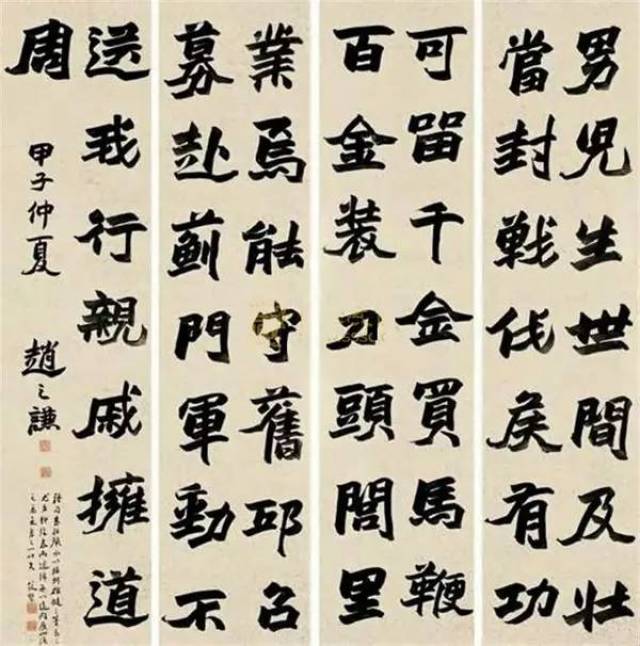 男兒生世間及壯
當封戰伐矦有功
可留千金買馬鞭
百金裝刀頭閭里
業焉能守舊邱召
募赴薊門軍動不
送我行親戚擁道
周
甲子仲夏 趙之謙